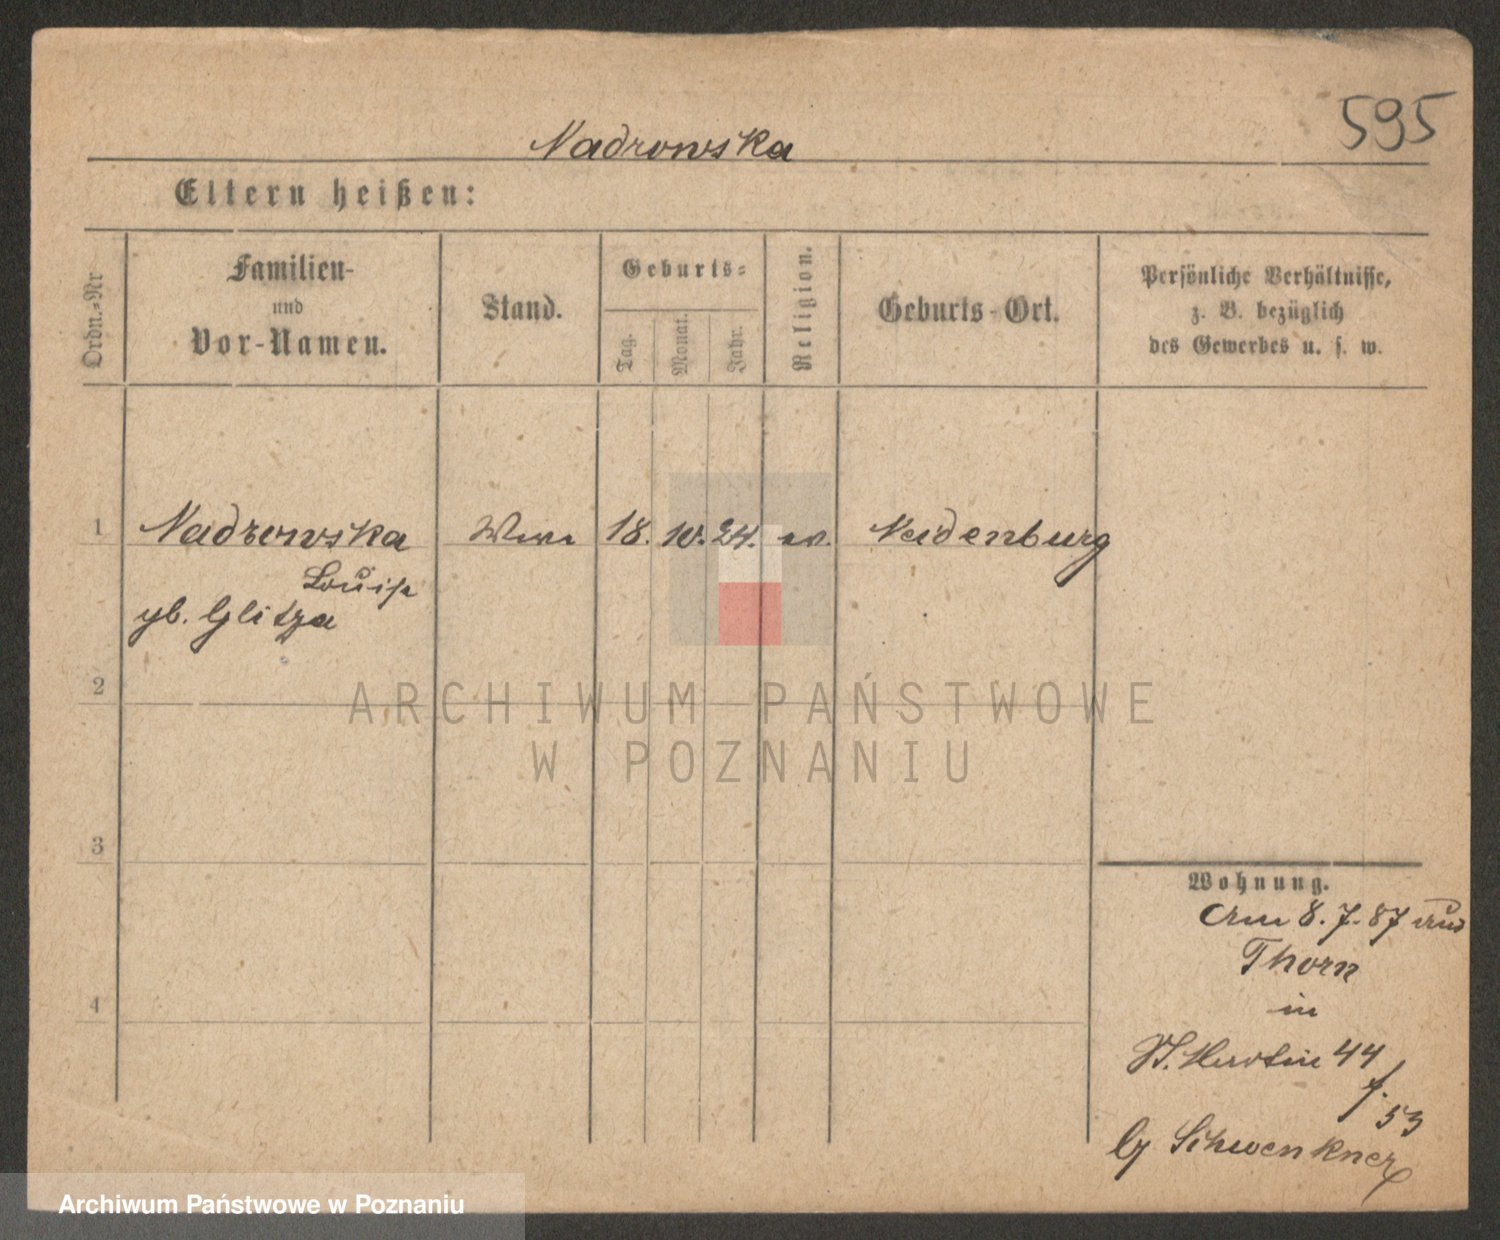 595
Nadrowska
Eltern heißen:
Ordn.-Nr
Familien-
und
Vor-Namen.
Stand.
Geburts-
Tag.
Monat.
Jahr.
Religion.
Geburts-Ort.
Persönliche Verhältnisse,
z. B. bezüglich
des Gewerbes u. s. w.
1 Nadrowska 18. 10. 24. ev. Neidenburg
Louise
gb. Glitza
2
ARCHIWUM PAŃSTWOWE
W POZNANIU
3
Wohnung.
Am 8.7.87 aus
Thorn
4
in
St. Martin 44
f. 53
by Schwenkner
Archiwum Państwowe w Poznaniu